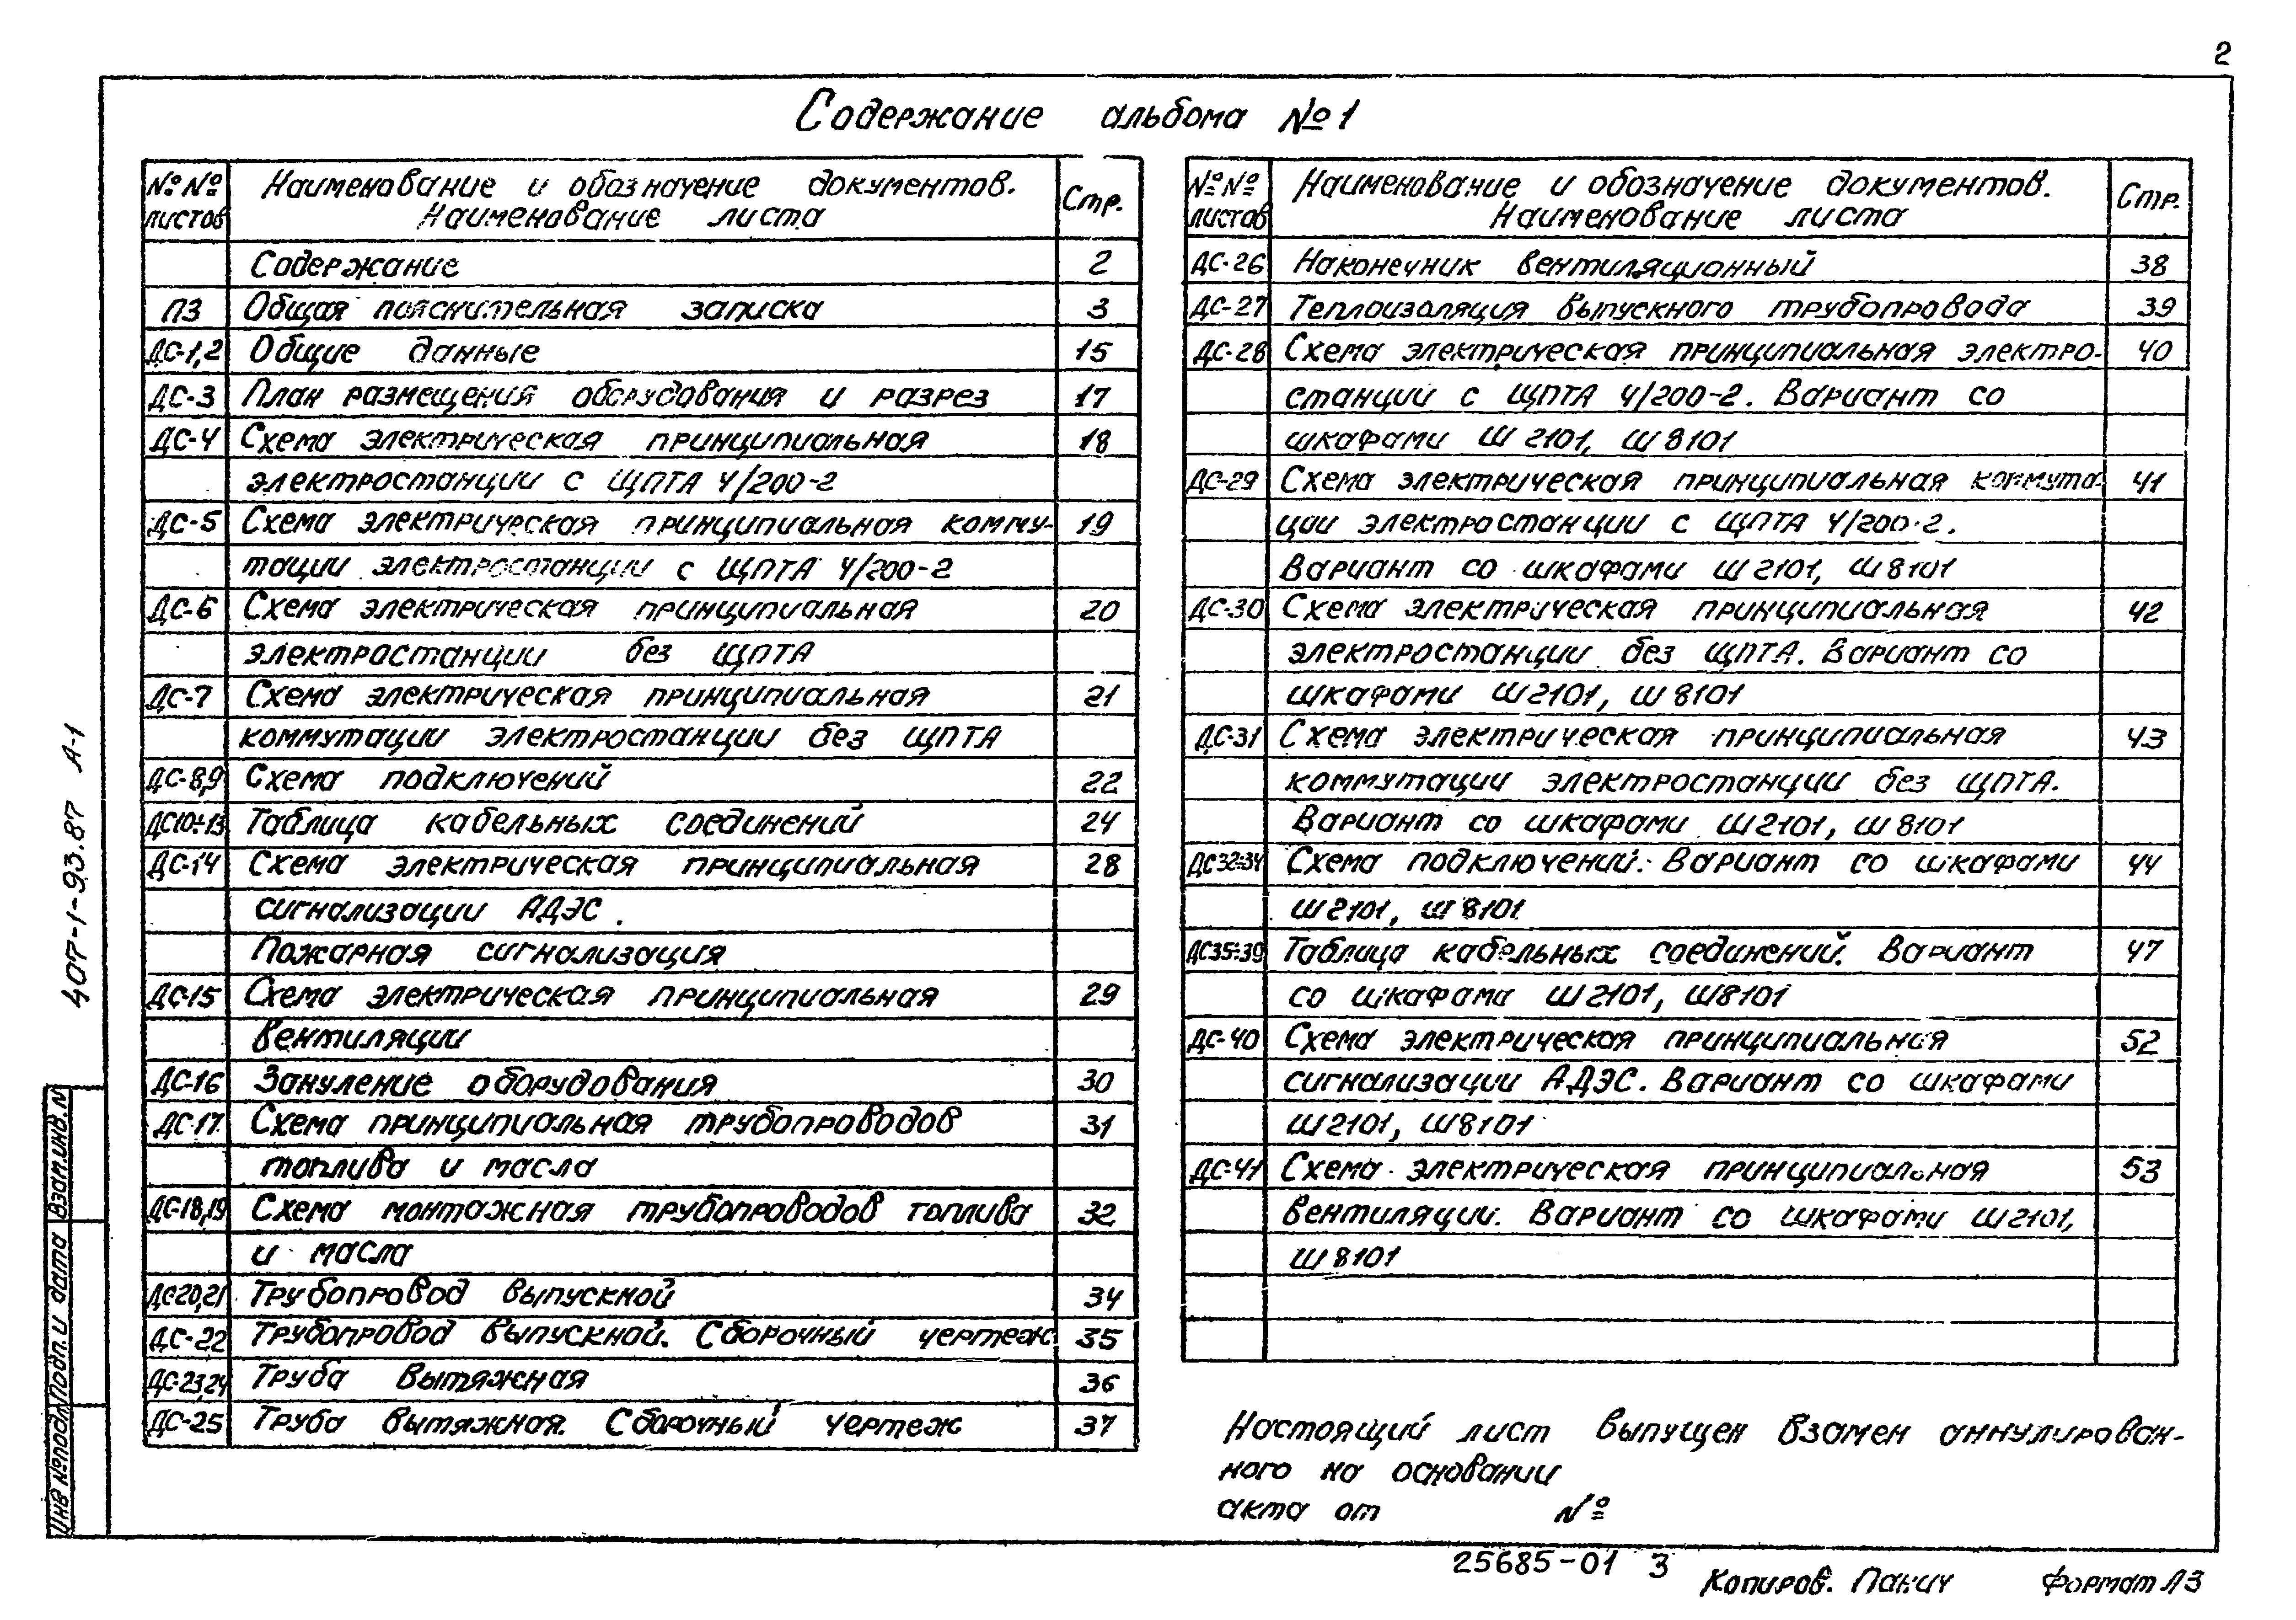 2
Содержание альбома №1
№№ листов
Наименование и обозначение документов.
Наименование листа
Стр.
Содержание 2
ПЗ Общая пояснительная записка 3
ДС-1,2 Общие данные 15
ДС-3 План размещения оборудования и разрез 17
ДС-4 Схема электрическая принципиальная 18
электростанции с ЩПТА 4/200-2
ДС-5 Схема электрическая принципиальная комму- 19
тации электростанции с ЩПТА 4/200-2
ДС-6 Схема электрическая принципиальная 20
электростанции без ЩПТА
ДС-7 Схема электрическая принципиальная 21
коммутации электростанции без ЩПТА
ДС-8,9 Схема подключений 22
ДС10÷13 Таблица кабельных соединений 24
ДС-14 Схема электрическая принципиальная 28
сигнализации АДЭС.
Пожарная сигнализация
ДС-15 Схема электрическая принципиальная 29
вентиляции
ДС-16 Зануление оборудования 30
ДС-17 Схема принципиальная трубопроводов 31
топлива и масла
ДС-18,19 Схема монтажная трубопроводов топлива 32
и масла
ДС-20,21 Трубопровод выпускной 34
ДС-22 Трубопровод выпускной. Сборочный чертеж 35
ДС-23,24 Труба вытяжная 36
ДС-25 Труба вытяжная. Сборочный чертеж 37
№№ листов
Наименование и обозначение документов.
Наименование листа
Стр.
ДС-26 Наконечник вентиляционный 38
ДС-27 Теплоизоляция выпускного трубопровода 39
ДС-28 Схема электрическая принципиальная электро- 40
станции с ЩПТА 4/200-2. Вариант со
шкафами Ш2101, Ш8101
ДС-29 Схема электрическая принципиальная коммута- 41
ции электростанции с ЩПТА 4/200-2.
Вариант со шкафами Ш2101, Ш8101
ДС-30 Схема электрическая принципиальная 42
электростанции без ЩПТА. Вариант со
шкафами Ш2101, Ш8101
ДС-31 Схема электрическая принципиальная 43
коммутации электростанции без ЩПТА.
Вариант со шкафами Ш2101, Ш8101
ДС32÷34 Схема подключений. Вариант со шкафами 44
Ш2101, Ш8101
ДС35÷39 Таблица кабельных соединений. Вариант 47
со шкафама Ш2101, Ш8101
ДС-40 Схема электрическая принципиальная 52
сигнализации АДЭС. Вариант со шкафами
Ш2101, Ш8101
ДС-41 Схема электрическая принципиальная 53
вентиляции. Вариант со шкафами Ш2101,
Ш8101
Настоящий лист выпущен взамен аннулирован-
ного на основании
акта от №
407-1-93.87 А-1
Взам.инв.N
Подп. и дата
Инв №подл
25685-01 3
Копиров. Панич Формат А3